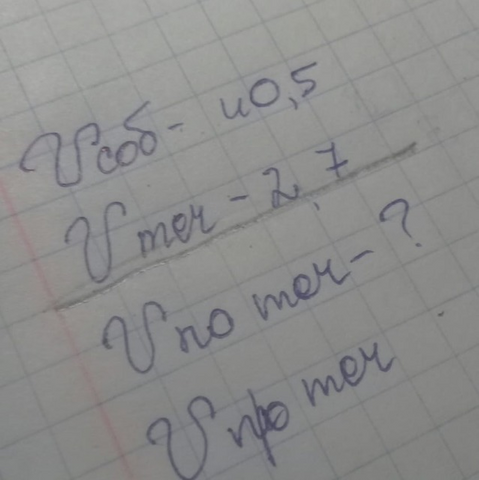 Vсоб - 40,5
Vтеч - 2,7
Vпо теч - ?
Vпро теч